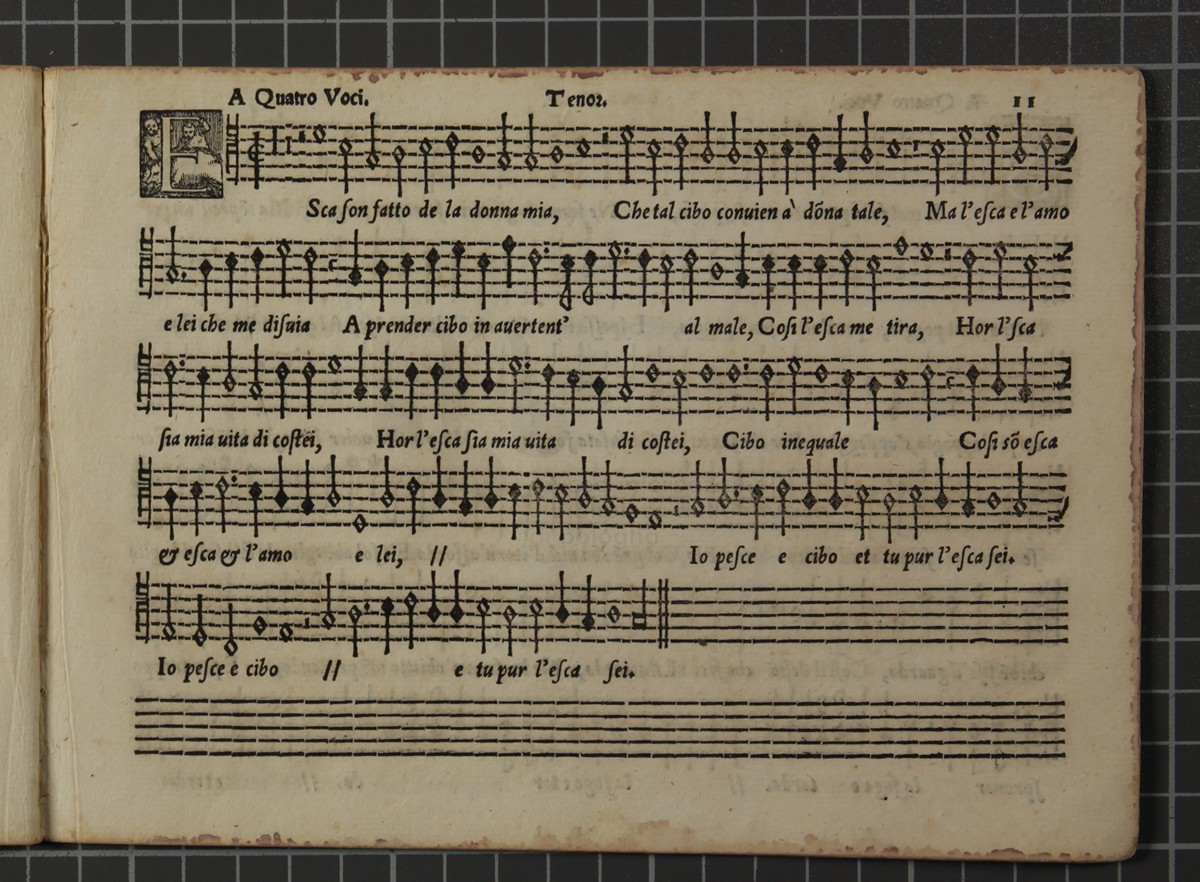 A Quatro Voci. Tenor. 11
E
Sca ſon fatto de la donna mia, Che tal cibo conuien a` dõna tale, Ma l'eſca e l'amo
e lei che me diſuia A prender cibo in auertent' al male, Coſi l'eſca me tira, Hor l'ſca
ſia mia uita di coſtei, Hor l'eſca ſia mia uita di coſtei, Cibo inequale Coſi sõ eſca
& eſca & l'amo e lei, // Io peſce e cibo et tu pur l'eſca ſei.
Io peſce e cibo // e tu pur l'eſca ſei.